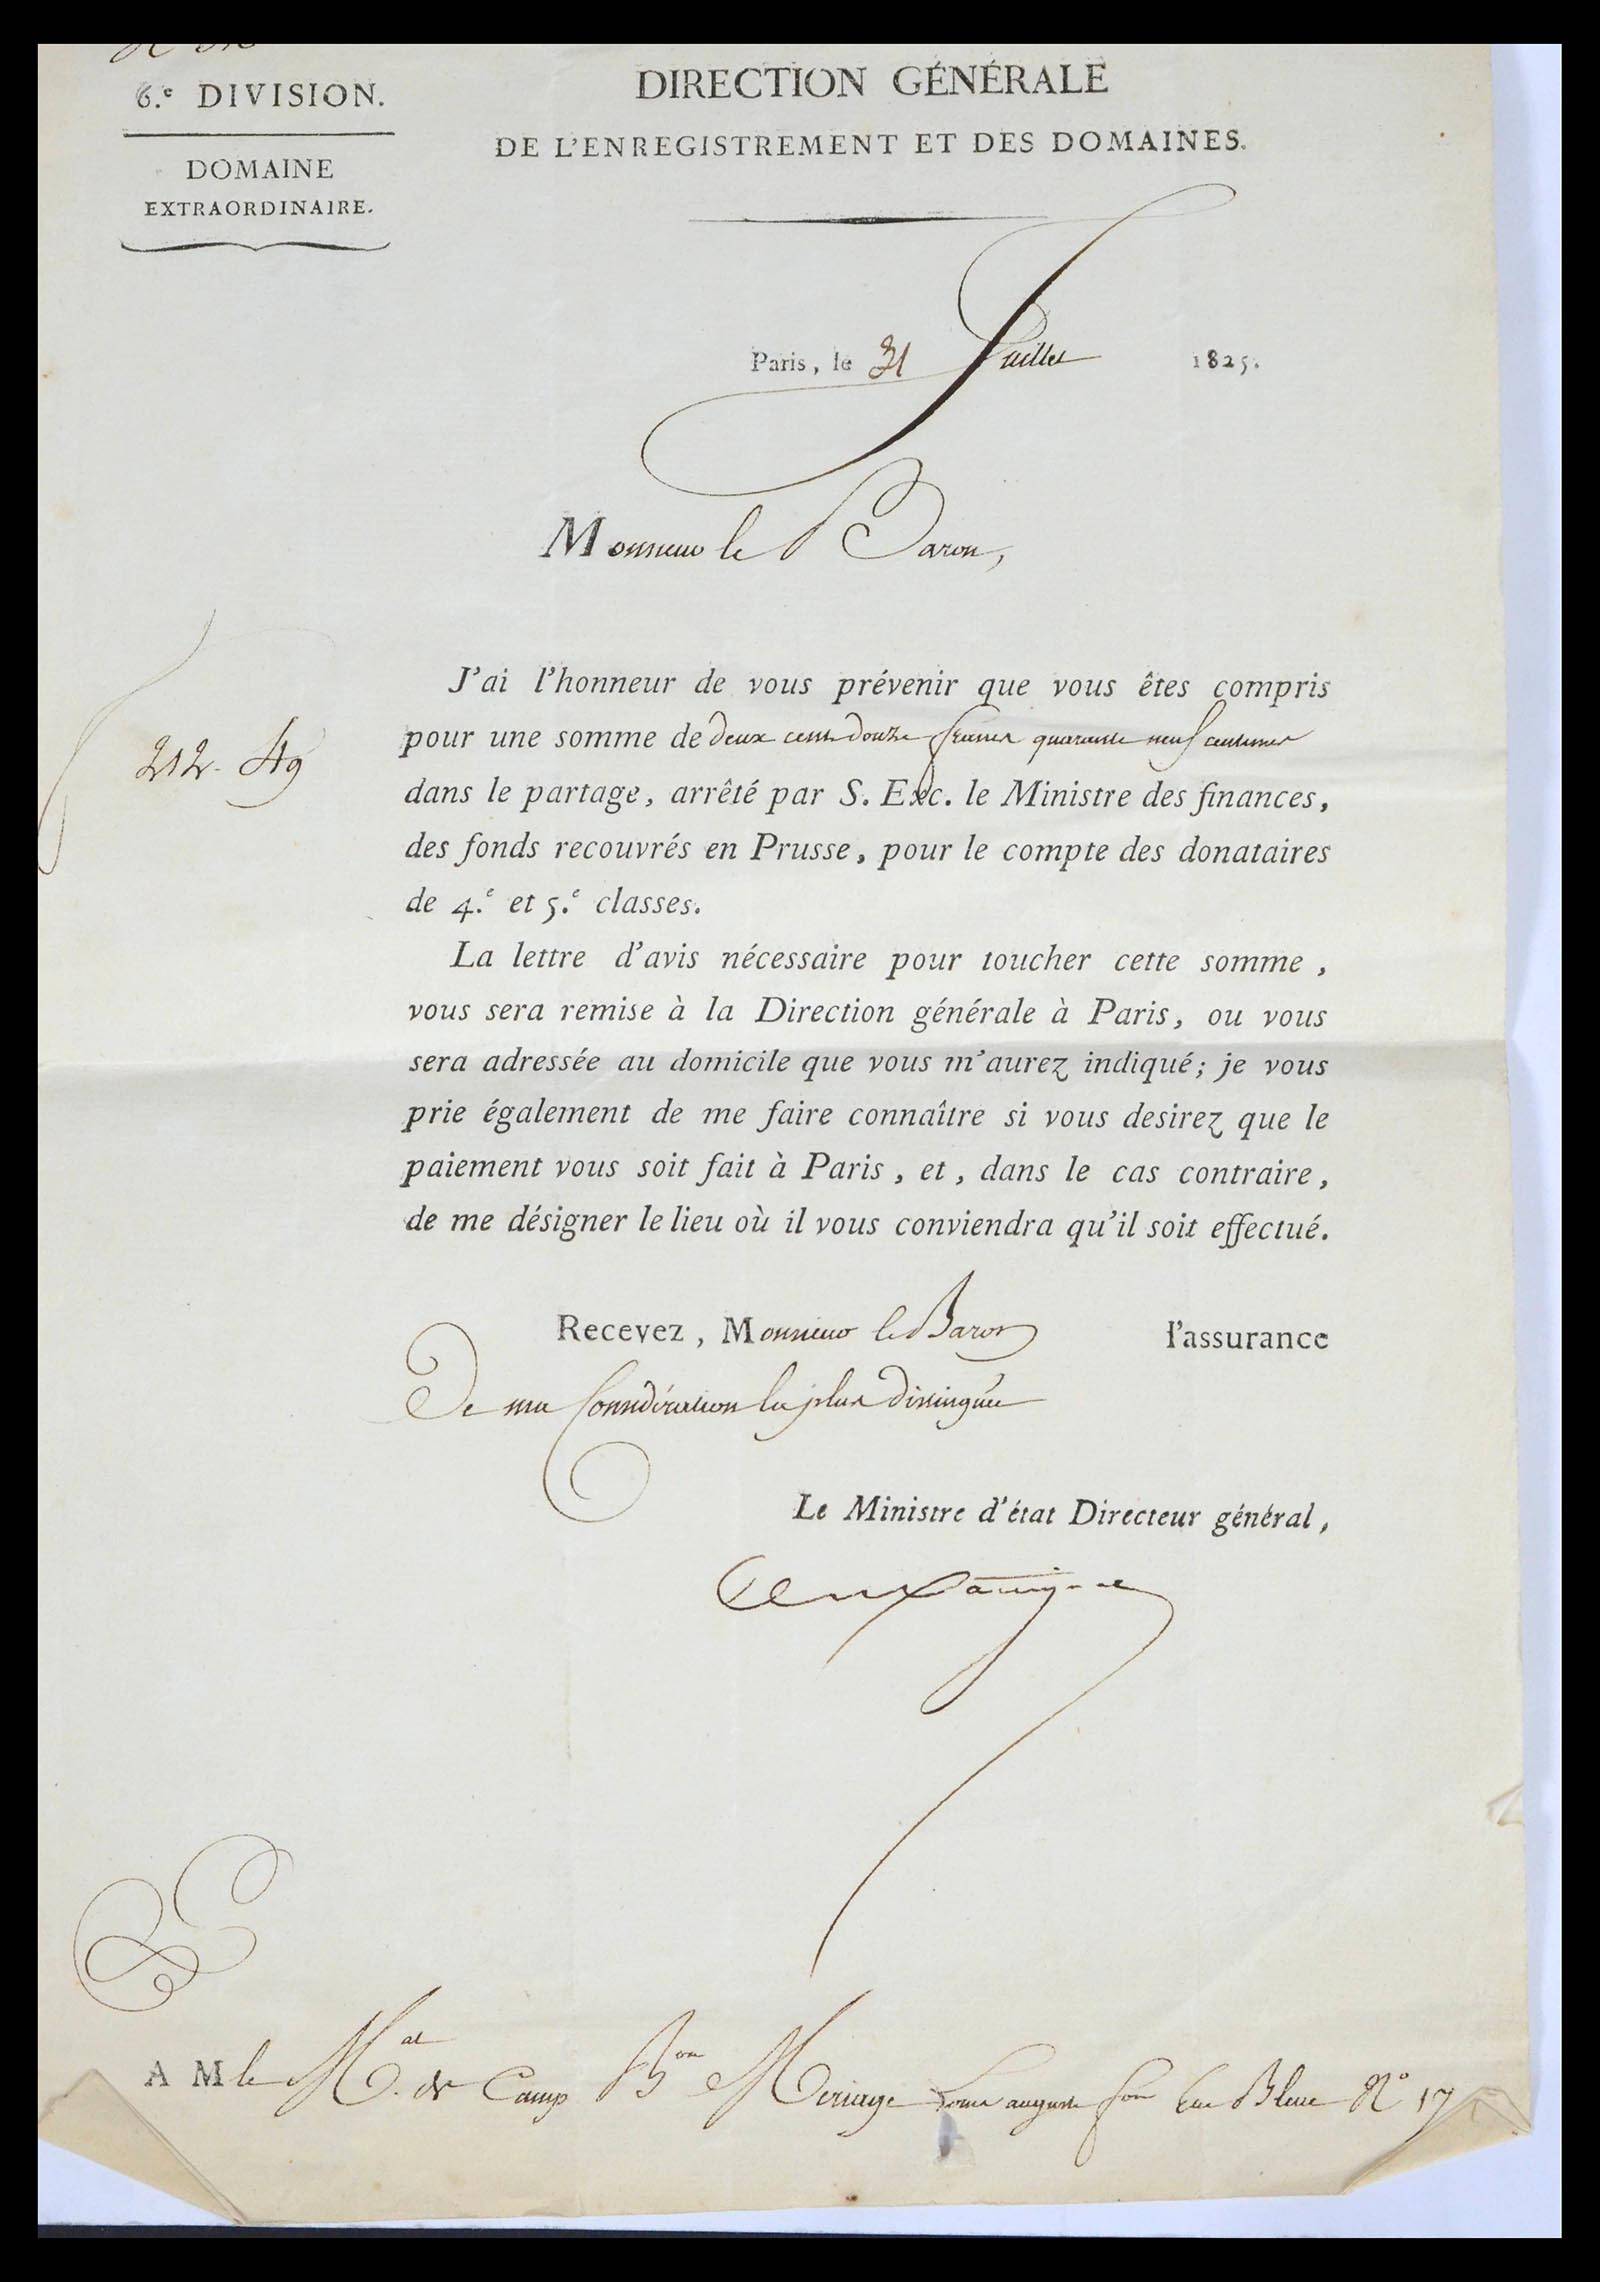 6.e DIVISION.
DOMAINE
EXTRAORDINAIRE.
DIRECTION GÉNÉRALE
DE L'ENREGISTREMENT ET DES DOMAINES.
Paris, le 31 Juillet 1825.
Monsieur le Baron,
212. 49
J'ai l'honneur de vous prévenir que vous êtes compris
pour une somme de deux cent douze francs quarante neuf centimes
dans le partage, arrêté par S. Exc. le Ministre des finances,
des fonds recouvrés en Prusse, pour le compte des donataires
de 4.e et 5.e classes.
La lettre d'avis nécessaire pour toucher cette somme,
vous sera remise à la Direction générale à Paris, ou vous
sera adressée au domicile que vous m'aurez indiqué; je vous
prie également de me faire connaître si vous desirez que le
paiement vous soit fait à Paris, et, dans le cas contraire,
de me désigner le lieu où il vous conviendra qu'il soit effectué.
Recevez, Monsieur le Baron l'assurance
De ma Considération la plus distinguée
Le Ministre d'état Directeur général,
A M le M.al de Camp B.on Meriage Louis auguste f.on rue Bleue N.o 17